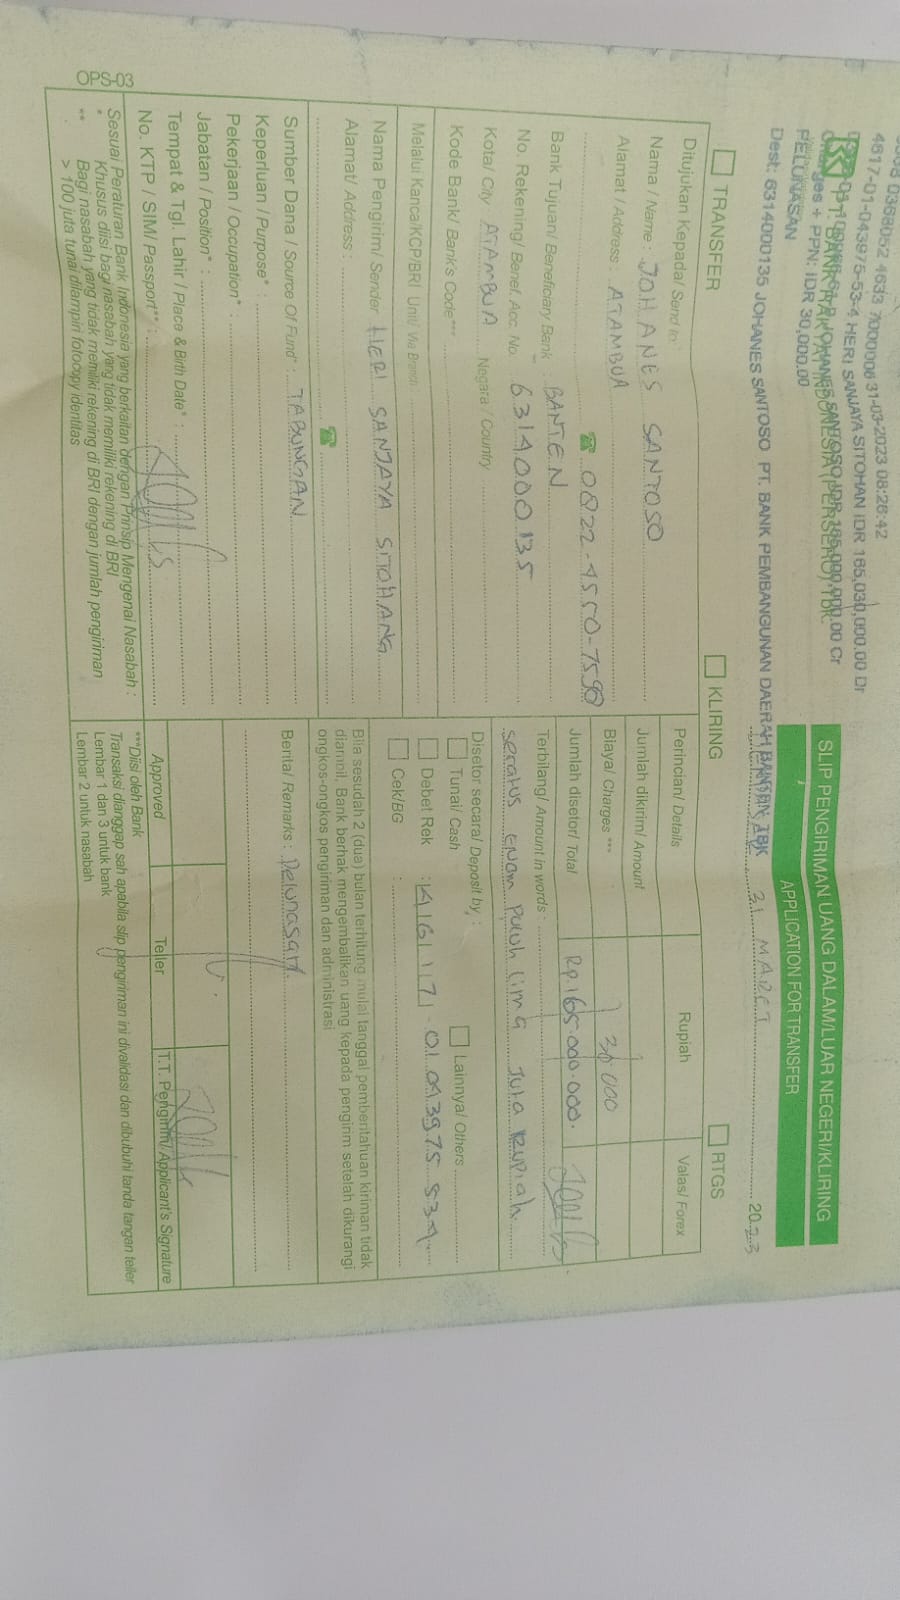 0368052 4633 7000006 31-03-2023 08:26:42
4617-01-043975-53-4 HERI SANJAYA SITOHAN IDR 165,030,000.00 Dr
JOHANES SANTOSO IDR 165,000,000.00 Cr
PT. BANK RAKYAT INDONESIA (PERSERO) Tbk.
Charges + PPN: IDR 30,000.00
PELUNASAN
Dest: 6314000135 JOHANES SANTOSO PT. BANK PEMBANGUNAN DAERAH BANTEN, TBK
SLIP PENGIRIMAN UANG DALAM/LUAR NEGERI/KLIRING
APPLICATION FOR TRANSFER
31 MARET 2023
TRANSFER KLIRING RTGS
Ditujukan Kepada/ Send to:
Nama / Name : JOHANES SANTOSO
Alamat / Address : ATAMBUA
☎ 0822-4550-7590
Bank Tujuan/ Beneficiary Bank BANTEN
No. Rekening/ Benef. Acc. No. 6314000135
Kota/ City ATAMBUA Negara / Country
Kode Bank/ Bank's Code***
Melalui Kanca/KCP/BRI Unit/ Via Branch
Nama Pengirim/ Sender HERI SANJAYA SITOHANG
Alamat/ Address :
☎
Sumber Dana / Source Of Fund* : TABUNGAN
Keperluan / Purpose* :
Pekerjaan / Occupation* :
Jabatan / Position* :
Tempat & Tgl. Lahir / Place & Birth Date* :
No. KTP / SIM/ Passport** :
Sesuai Peraturan Bank Indonesia yang berkaitan dengan Prinsip Mengenai Nasabah :
* Khusus diisi bagi nasabah yang tidak memiliki rekening di BRI
** Bagi nasabah yang tidak memiliki rekening di BRI dengan jumlah pengiriman
> 100 juta tunai dilampiri fotocopy identitas
OPS-03
Perincian/ Details Rupiah Valas/ Forex
Jumlah dikirim/ Amount
Biaya/ Charges *** 30.000
Jumlah disetor/ Total Rp.165.000.000.
Terbilang/ Amount in words :
seratus enam puluh lima Juta Rupiah
Disetor secara/ Deposit by :
Tunai/ Cash Lainnya/ Others
Debet Rek : 4617-01.043975-53-4
Cek/BG :
Bila sesudah 2 (dua) bulan terhitung mulai tanggal pemberitahuan kiriman tidak
diambil, Bank berhak mengembalikan uang kepada pengirim setelah dikurangi
ongkos-ongkos pengiriman dan administrasi
Berita/ Remarks : Pelunasan
Approved Teller T.T. Pengirim/Applicant's Signature
***Diisi oleh Bank
Transaksi dianggap sah apabila slip pengiriman ini divalidasi dan dibubuhi tanda tangan teller
Lembar 1 dan 3 untuk bank
Lembar 2 untuk nasabah